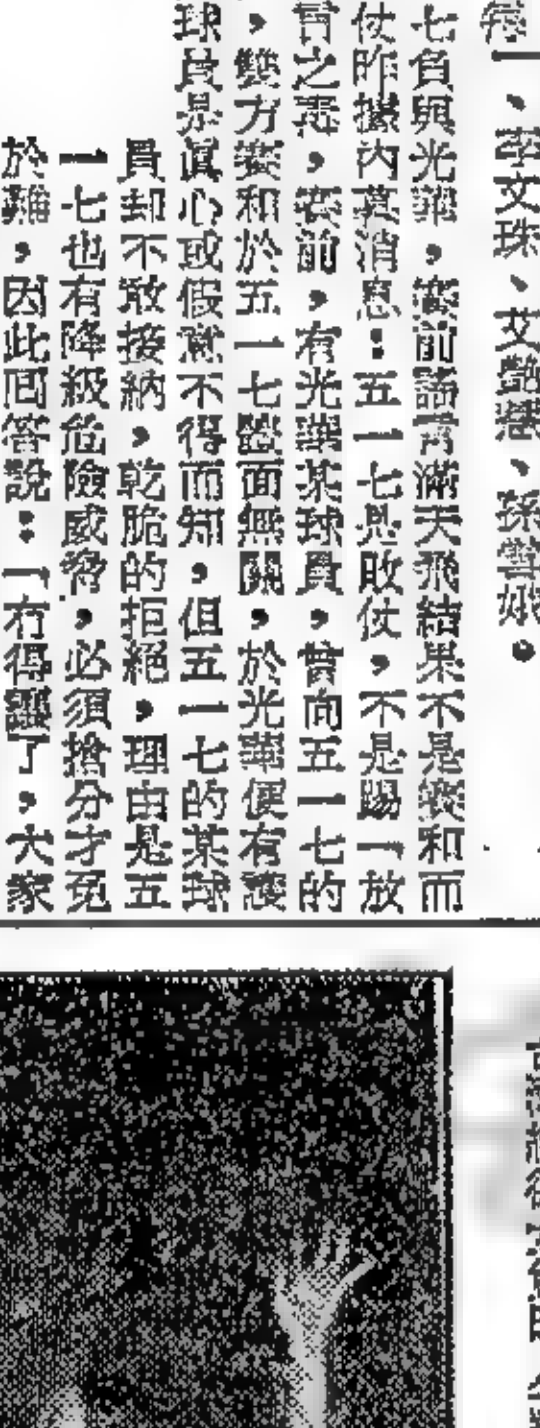 、李文珠、艾艷慧、孫雪娥。
七負與光華，賽前謠言滿天飛結果不是娑和而
仗昨據內幕消息：五一七是敗仗，不是踢「放
言之毒，賽前，有光華某球員，曾向五一七的
，雙方娑和於五一七體面無關，於光華便有護
球員是眞心或假意不得而知，但五一七的某球
員却不敢接納，乾脆的拒絕，理由是五
一七也有降級危險威脅，必須搶分才免
於難，因此回答說：「冇得讓了，大家